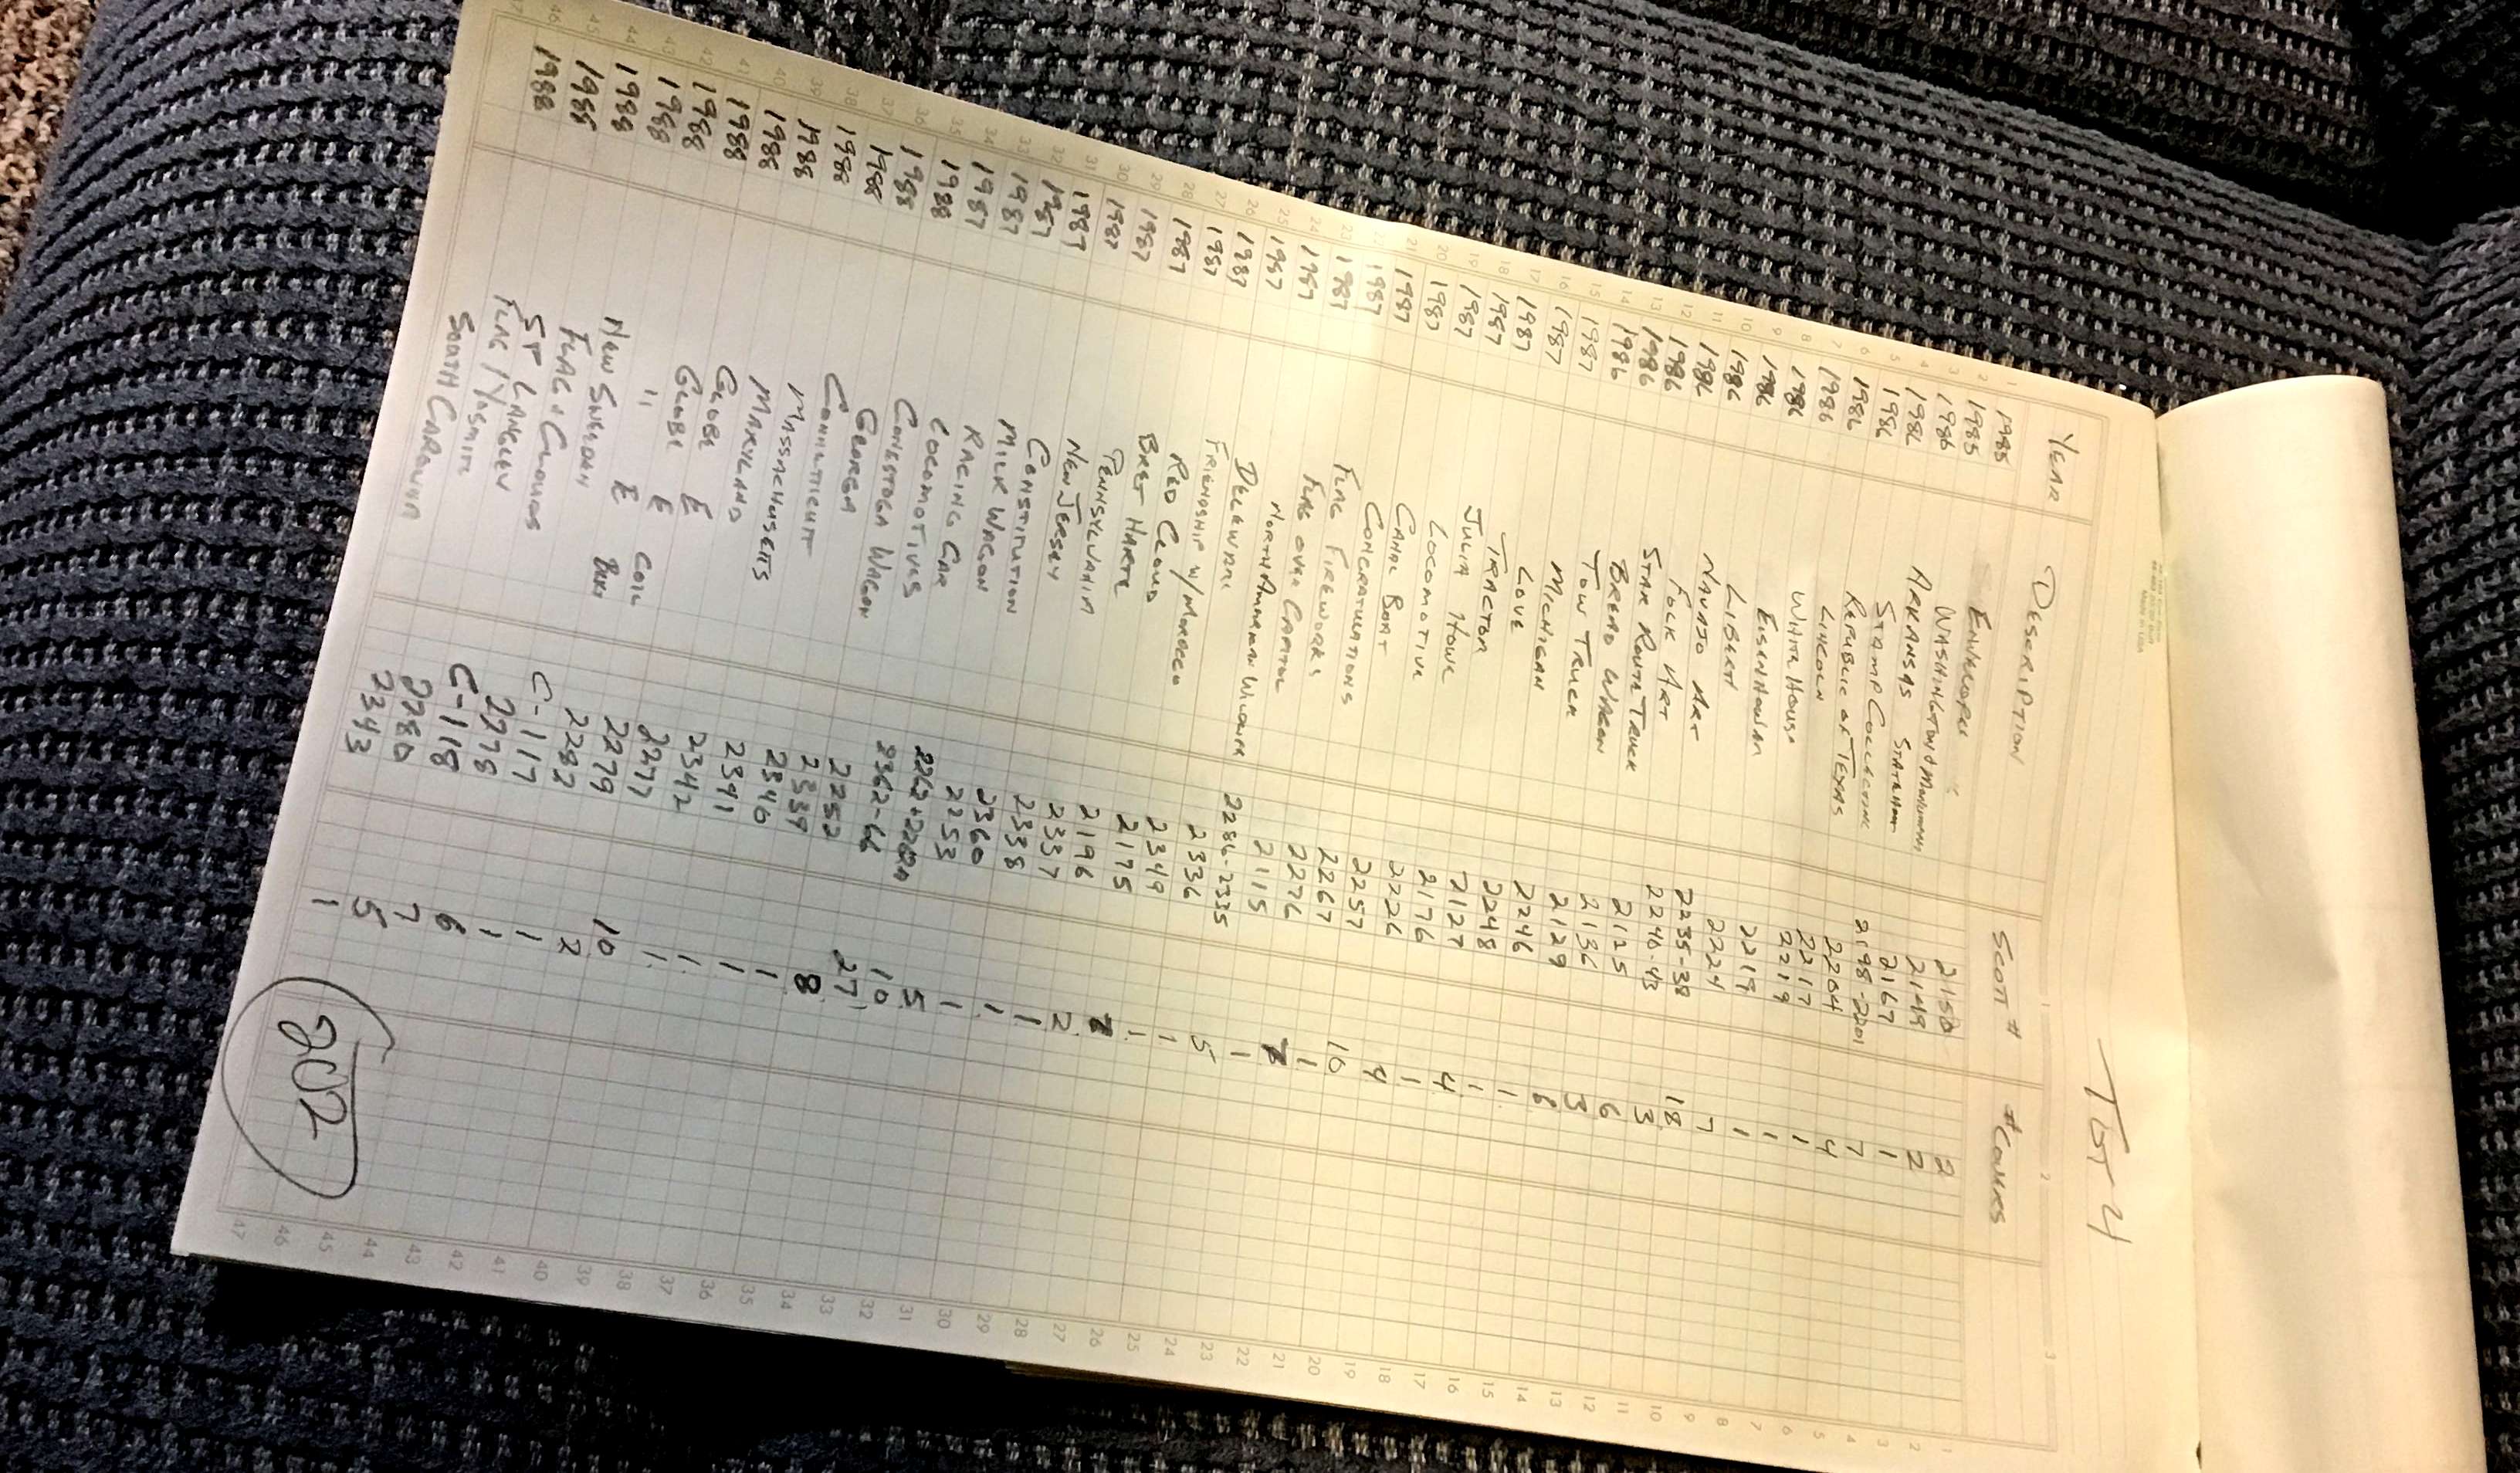 Tot 4
YEAR DESCRIPTION SCOTT # # COVERS
1985 ENVELOPE 2150 2
1985 WASHINGTON & MONUMENT 2149 2
1986 ARKANSAS STATEHOOD 2167 1
1986 STAMP COLLECTING 2198-2201 7
1986 REPUBLIC OF TEXAS 2204 4
1986 LINCOLN 2217 1
1986 WHITE HOUSE 2219 1
1986 EISENHOWER 2219 1
1986 LIBERTY 2224 7
1986 NAVAJO ART 2235-38 18
1986 FOLK ART 2240-43 3
1986 STAR ROUTE TRUCK 2125 6
1986 BREAD WAGON 2136 3
1986 TOW TRUCK 2129 6
1987 MICHIGAN 2246 1
1987 LOVE 2248 1
1987 TRACTOR 2127 4
1987 JULIA HOWE 2176 1
1987 LOCOMOTIVE 2226 4
1987 CANAL BOAT 2257 10
1987 CONGRATULATIONS 2267 1
1987 FLAG FIREWORKS 2276 7
1987 FLAG OVER CAPITOL 2115 1
1987 NORTH AMERICAN WILDLIFE 2286-2335 5
1987 DELEWARE 2336 1
1987 FRIENDSHIP W/MOROCCO 2349 1
1987 RED CLOUD 2175 7
1987 BRET HARTE 2196 2
1987 PENNSYLVANIA 2337 1
1987 NEW JERSEY 2338 1
1987 CONSTITUTION 2360 1
1987 MILK WAGON 2253 5
1987 RACING CAR 2262+2262A 10
1987 LOCOMOTIVES 2362-66 27
1988 CONESTOGA WAGON 2252 8
1988 GEORGIA 2339 1
1988 CONNETICUT 2340 1
1988 MASSACHUSETTS 2341 1
1988 MARYLAND 2342 1
1988 GLOBE E 2277 10
1988 GLOBE E COIL 2279 2
1988 " E BKLT 2282 1
1988 NEW SWEDAN C-117 1
1988 FLAG & CLOUDS 2278 6
1988 SP LANGLEY C-118 7
1988 FLAG / YOSMITE 2280 5
1988 SOUTH CAROLINA 2343 1
202